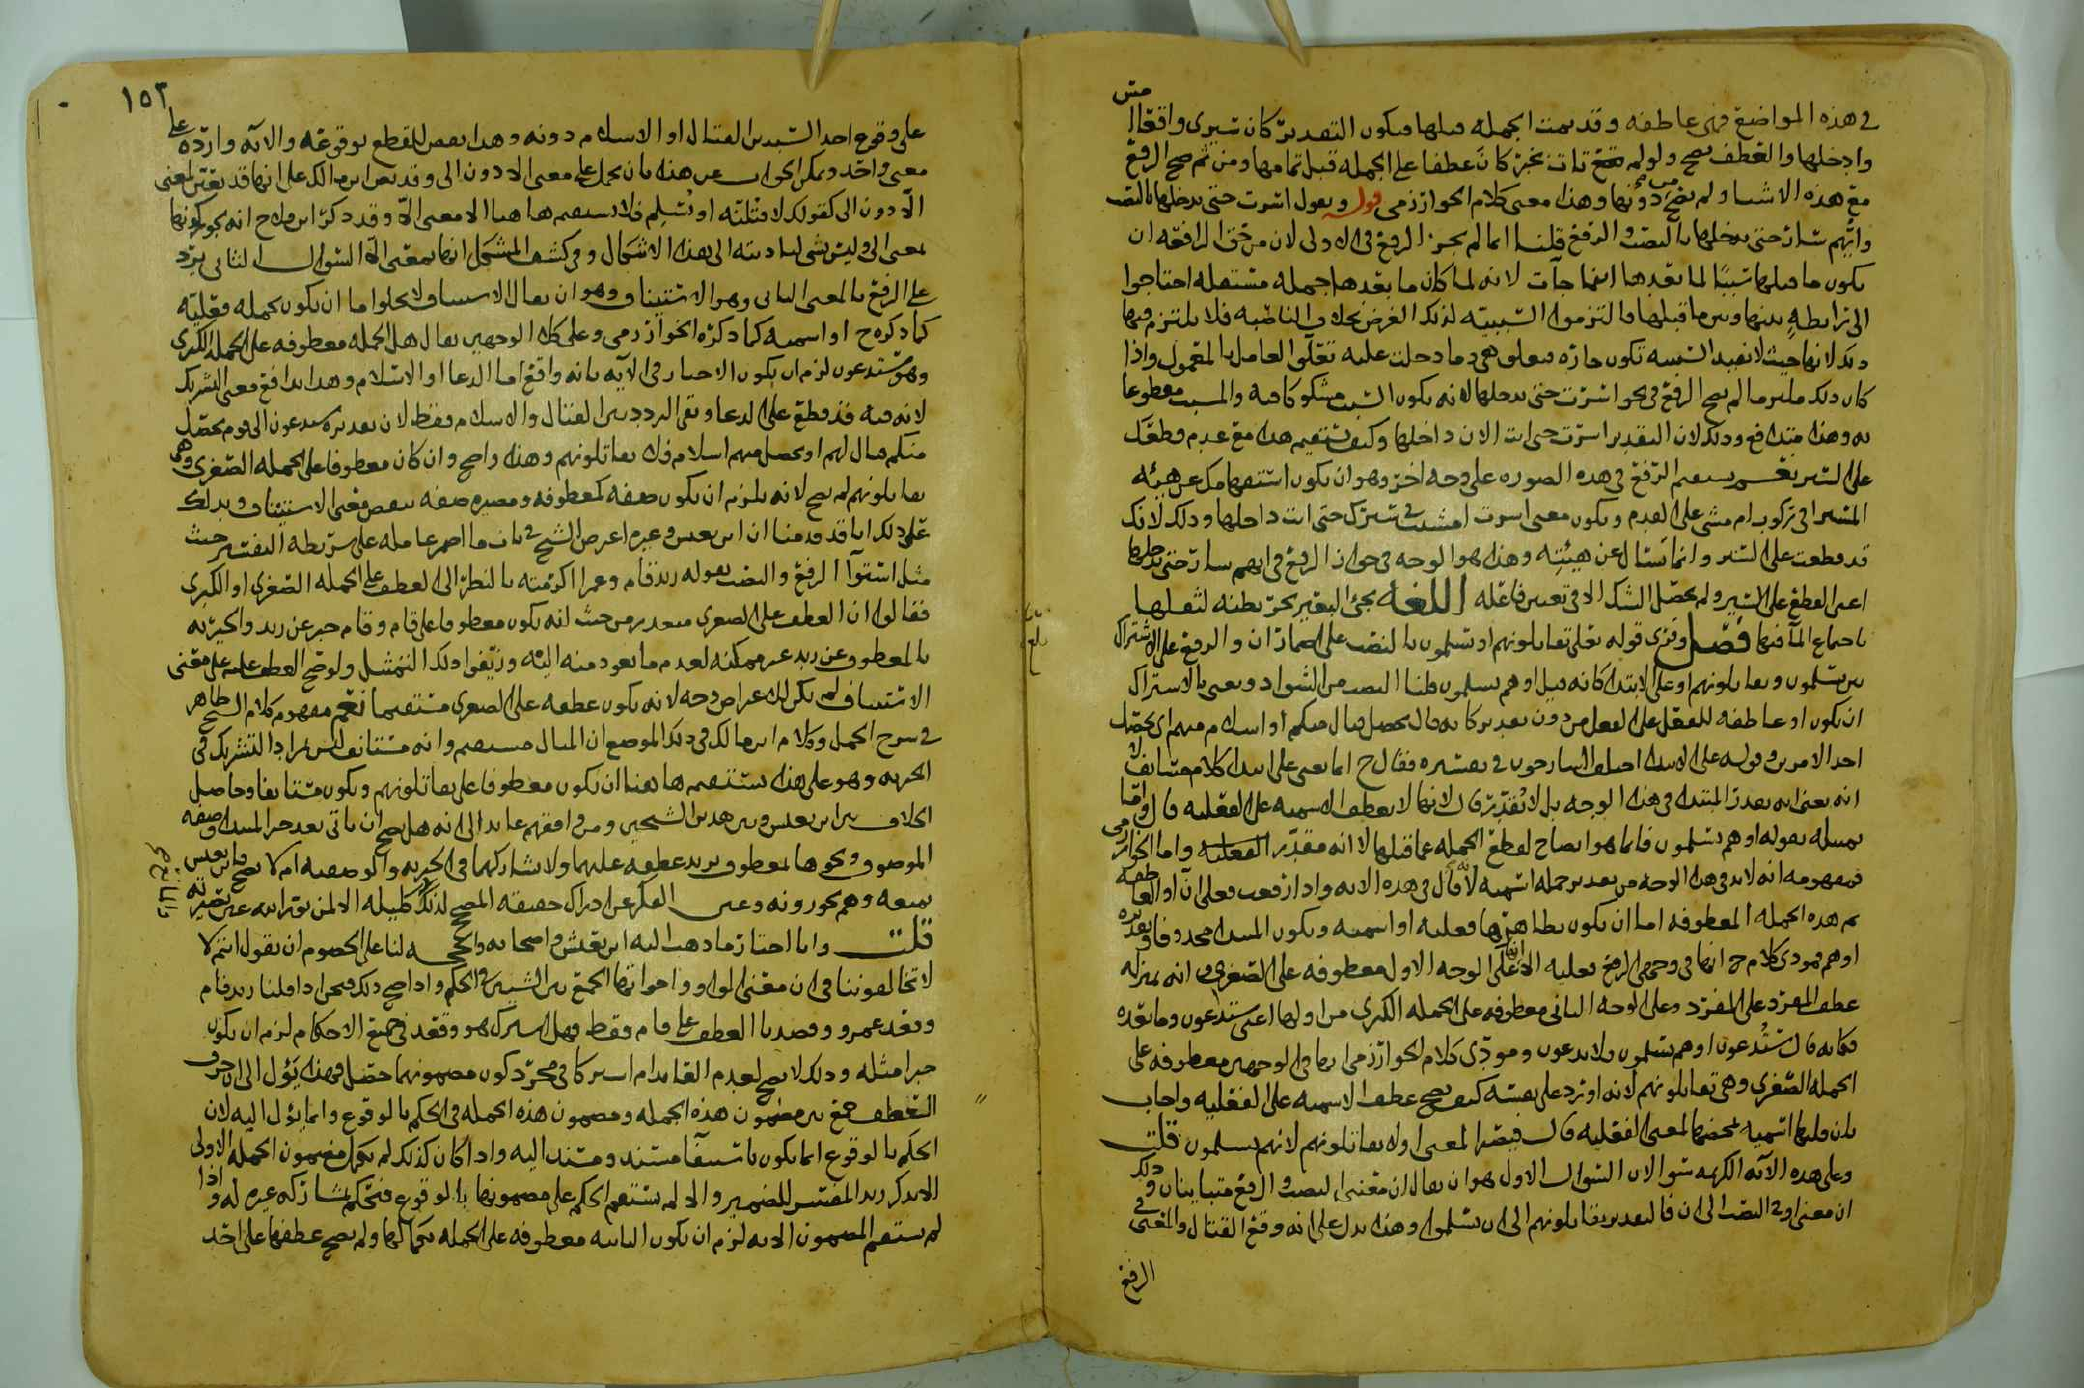 في هذه المواضع فهي عاطفه وقد تمت الجمله قبلها فيكون التقدير كان سيري واقعا
وادخلها والعطف يصح ولو لم بخبر كان عطفا على الجمله قبل تمامها ومن ثم صح الرفع
مع هذه الاشيا ولم يصح دونها وهذا معنى كلام الخوارزمي قوله ويقول اسرت حتى تدخلها بالنصب
وايهم سار حتى يدخلها بالنصب والرفع قلنا انما لم يجز الرفع في الاولى لان من حق الرافعه ان
يكون ما قبلها سببا لما بعدها انما جآت لانه لما كان ما بعدها جمله مستقله احتاجوا
الى رابطه بينها وبين ما قبلها فالتزموا السببيه لذلك الغرض بخلاف الناصبه فلا يلتزم فيها
ذلك لانها حيث لا تفيد السببيه تكون جاره متعلق هي وما دخلت عليه تعلق العامل بالمعمول واذا
كان ذلك ملتزما لم يصح الرفع في نحو اسرت حتى تدخلها لانه يكون السبب مشكوكا فيه والمسبب مقطوعا
به وهذا متدافع وذلك لان التقدير اسرت حتى انت الان داخلها وكيف يستقيم هذا مع عدم قطعك
على السير نعم يستقيم الرفع في هذه الصوره على وجه اخر وهو ان يكون استفهامك عن هيئه
المسير في ركوب ام مشي على القدم ويكون معنى اسرت امشيت في سيرك حتى انت داخلها وذلك لانك
قد قطعت على السير وانما تسال عن هيئته وهذا هو الوجه في جواز الرفع في ايهم سار حتى يدخلها
اعني القطع على السير ولم يحصل الشك الا في تعيين فاعله اللغه يجئ البعير يجر بطنه لثقلها
باجماع المآ فيها فصل وقرئ قوله تعلى تقاتلونهم او يسلمون بالنصب على اضمار ان والرفع على الاشتراك
بين يسلمون وتقاتلونهم او على الابتدا كانه قيل او هم يسلمون قلنا النصب من الشواذ ويعني بالاشتراك
ان يكون او عاطفه للفعل على الفعل من دون تقدير كانه قال يحصل قتال منكم او اسلام منهم اي يحصل
احد الامرين وقوله على الابتدا اختلف الشارحون في تفسيره فقال ح انما يعني على ابتدا كلام مستانف لا
انه يعني انه يقدر المبتدا في هذا الوجه بل لا يقدر قال لانها لا يعطف الاسميه على الفعليه قال واما
تمثيله بقوله او هم يسلمون فانما هو ايضاح لقطع الجمله عما قبلها لا انه مقدر الفعليه واما الخوارزمي
فمفهومه انه لابد في هذا الوجه من تقدير جمله اسميه لانه قال في هذه الايه واذا رفعت فعلى ان او العاطفه
ثم هذه الجمله المعطوفه اما ان يكون بظاهرها فعليه او اسميه ويكون المبتدا محذوفا وتقديره
او هم فمودى كلام ح انها في وجهي الرفع فعليه الا ان على الوجه الاول معطوفه على الصغرى وانه بمنزله
عطف المفرد على المفرد وعلى الوجه الثاني معطوفه على الجمله الكبرى من اولها اعني ستدعون وما بعده
فكانه قال ستدعون او هم يسلمون ولا تدعون ومودى كلام الخوارزمي انها في الوجهين معطوفه على
الجمله الصغرى وهي تقاتلونهم لانه اورد على نفسه كيف يصح عطف الاسميه على الفعليه واجاب
بان اسميه لمعنى الفعليه قال فيصير المعنى اولا تقاتلونهم لانهم يسلمون قلت
وعلى هذه الآيه الكريمه سوالان السوال الاول هو ان يقال ان معنى النصب والرفع متباينان وذلك
ان معنى او في النصب الى ان فالتقدير تقاتلونهم الى ان يسلموا وهذا يدل على انه وقع القتال والمعنى في
الرفع
١٥٣
على وقوع احد الشيئين القتال او الاسلام دونه وهذا بعض القطع بوقوعه والايه وارده على
معنى واحد ويمكن الجواب عن هذا بان يحمل على معنى الا دون الى وقد نص ابن مالك على انها قد تفسر بمعنى
الا دون الى كقولك لاقتلنه او يسلم فلا يستقيم هاهنا الا معنى الا وقد ذكر ابن ملاح انه يجوز كونها
بمعنى الى وليس شي لتاديته الى هذا الاشكال وفي كشف المشكل انها بمعنى الا السوال الثاني يرد
على الرفع بالمعنى الثاني وهو الاستيناف وهو ان يقال الاستيناف لا يخلوا اما ان يكون بجمله فعليه
كما ذكره ح او اسميه كما ذكره الخوارزمي وعلى كلا الوجهين يقال هل الجمله معطوفه على الجمله الكبرى
وهو ستدعون لزم ان يكون الاخبار في الآيه بانه واقع اما الدعا او الاسلام وهذا يدافع معنى التشريك
لانه فيه قد قطع على الدعا وبقى التردد بين القتال والاسلام فقط لان تقديره ستدعون الى قوم يحصل
منكم قتال لهم او يحصل منهم اسلام فلا تقاتلونهم وهذا واضح وان كان معطوفا على الجمله الصغرى وهي
تقاتلونهم لم يصح لانه يلزم ان يكون صفه كمعطوفه ومصيره صفه ينقض معنى الاستيناف ويدلك
على ذلك انا قد قدمنا ان ابن يعيش وغيره اعرض الشيخ في باب ما اضمر عامله على شريطه التفسير حيث
مثل استوآ الرفع والنصب بقوله زيد قام وعمرا اكرمته بالنظر الى العطف على الجمله الصغرى او الكبرى
فقالوا ان العطف على الصغرى متعذر من حيث انه يكون معطوفا على قام وقام خبر عن زيد والخبريه
بالمعطوف عن زيد غير ممكنه لعدم ما يعود منه اليه وزيفوا ذلك التمثيل ولو صح العطف عليه على معنى
الاستيناف لم يكن لاعتراض وجه لانه يكون عطفه على الصغرى مستقيما نعم مفهوم كلام الشيخ ظاهر
في شرح الجمل وكلام ابن مالك في ذلك الموضع ان المثال مستقيم وانه مستانف ليس يراد التشريك في
الخبريه وهو على هذا يستقيم هاهنا ان يكون معطوفا على تقاتلونهم ويكون مستانفا وحاصل
الخلاف بين ابن يعيش وبين هذين الشيخين ومن وافقهم عائد الى انه هل يصح ان ياتي بعد خبر المبتدا وصفه
الموصوف ونحوها لمعطوف يريد عطفه عليها ولا يشاركهما في الخبريه والوصفيه ام لا يصح فابن يعيش
يمنعه وهم يجوزونه وعين الفكر عن ادراك حقيقه المصحح لذلك كليله الا لمن نور الله عين بصيرته
قلت وانا احتار ما ذهب اليه ابن يعيش واصحابه والحجه لنا على الخصوم ان نقول انتم لا
لا تخالفوننا في ان معنى الواو واخواتها الجمع بين الشيئين في الحكم واذا صح ذلك فنحن اذا قلنا زيد قام
وقعد عمرو وقصدنا العطف على قام فقط فهل اشتراك هو وقعد في جميع الاحكام لزم ان يكون
خبرا مثله وذلك لا يصح لعدم العائد ام اشتركا في مجرد كون مضمونهما حصل فهذا يؤل الى ان حرف
العطف جمع بين مضمون هذه الجمله ومضمون هذه الجمله في الحكم بالوقوع وانما يؤل اليه لان
الحكم بالوقوع انما يكون باستيفآ مسند ومسند اليه واذا كان كذلك لم يكمل مضمون الجمله الاولى
الا بذكر زيد المفسر للضمير والا لم يستقم الحكم على مضمونها بالوقوع فيحكم بمشاركه غيره له واذا
لم يستقم المضمون الا به لزم ان يكون الثانيه معطوفه على الجمله بكمالها ولم يصح عطفها على احد